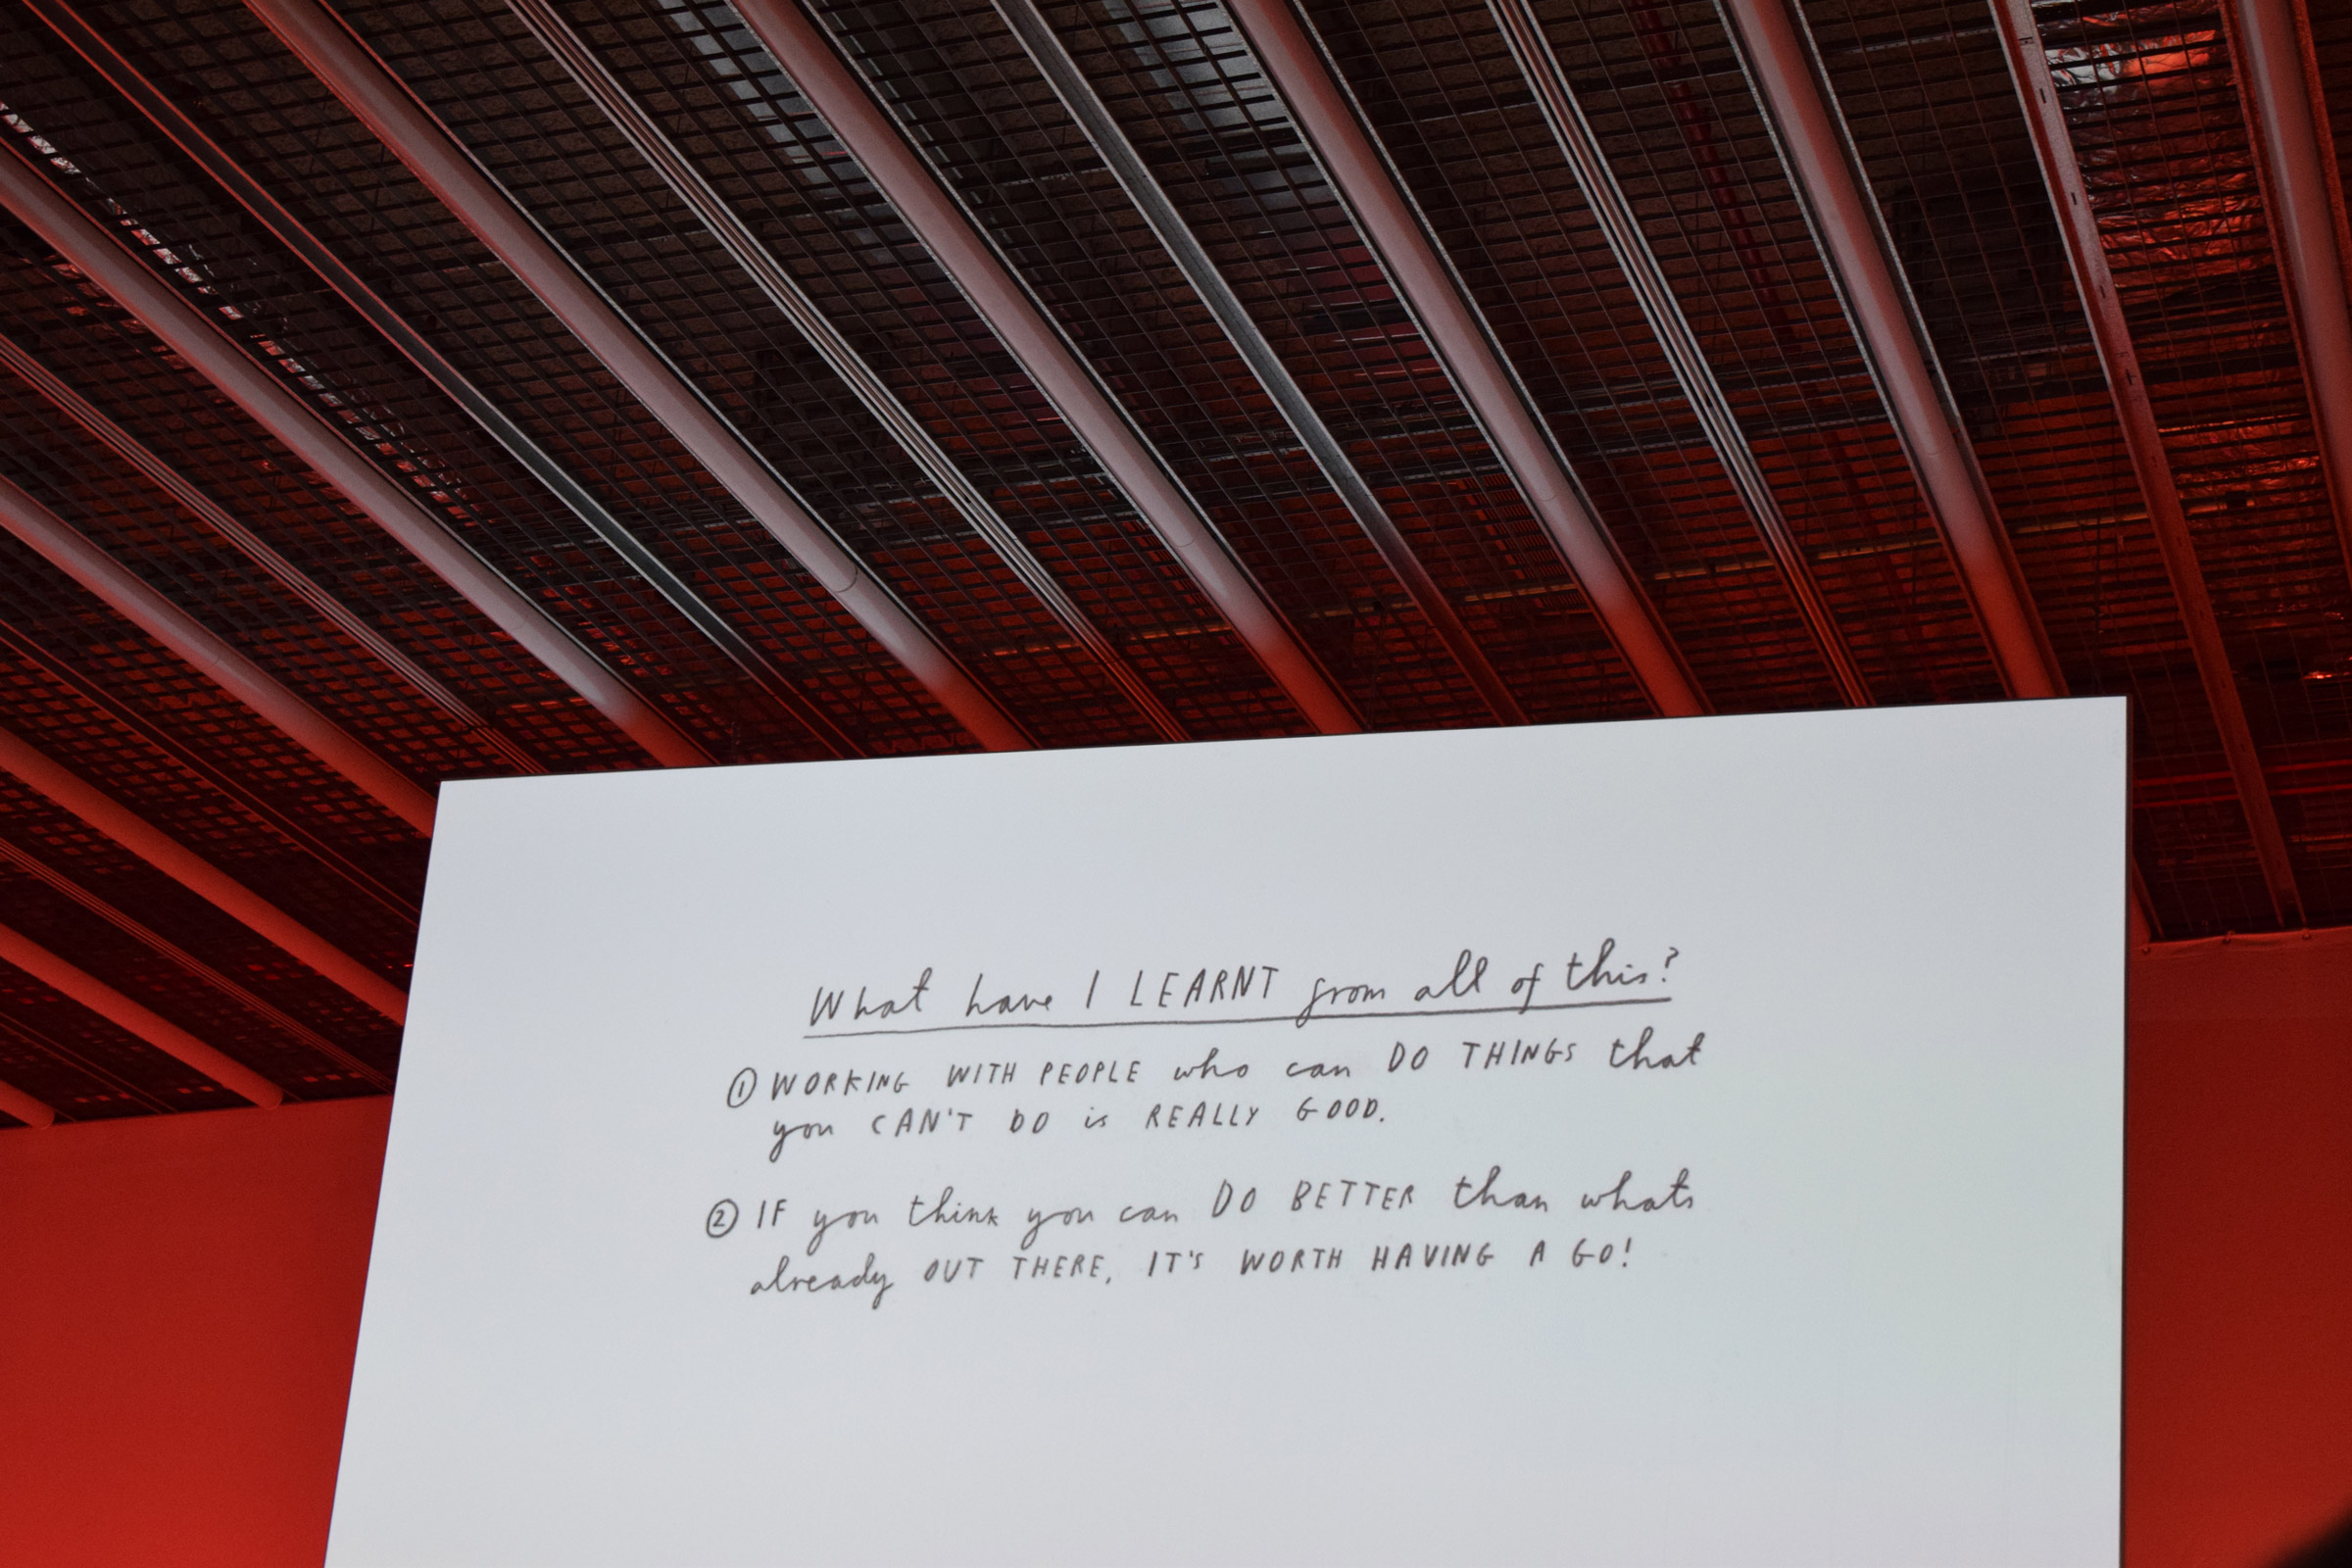 What have I LEARNT from all of this?
① WORKING WITH PEOPLE who can DO THINGS that
you CAN'T DO is REALLY GOOD.
② IF you think you can DO BETTER than whats
already OUT THERE, IT'S WORTH HAVING A GO!